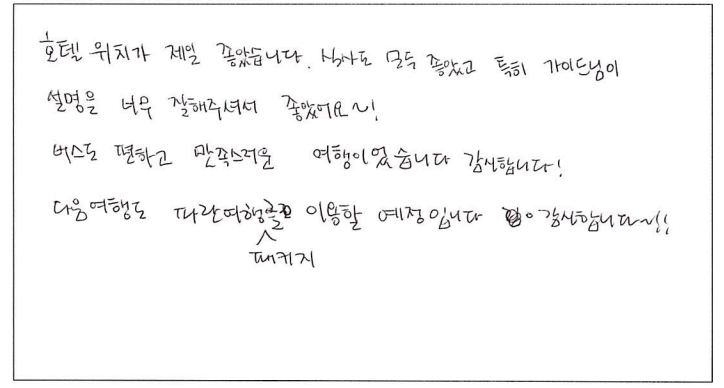 호텔 위치가 제일 좋았습니다. 식사도 모두 좋았고 특히 가이드님이
설명을 너무 잘해주셔서 좋았어요~!
버스도 편하고 만족스러운 여행이었습니다 감사합니다!
다음여행도 파란여행 이용할 예정입니다 감사합니다~!!
패키지